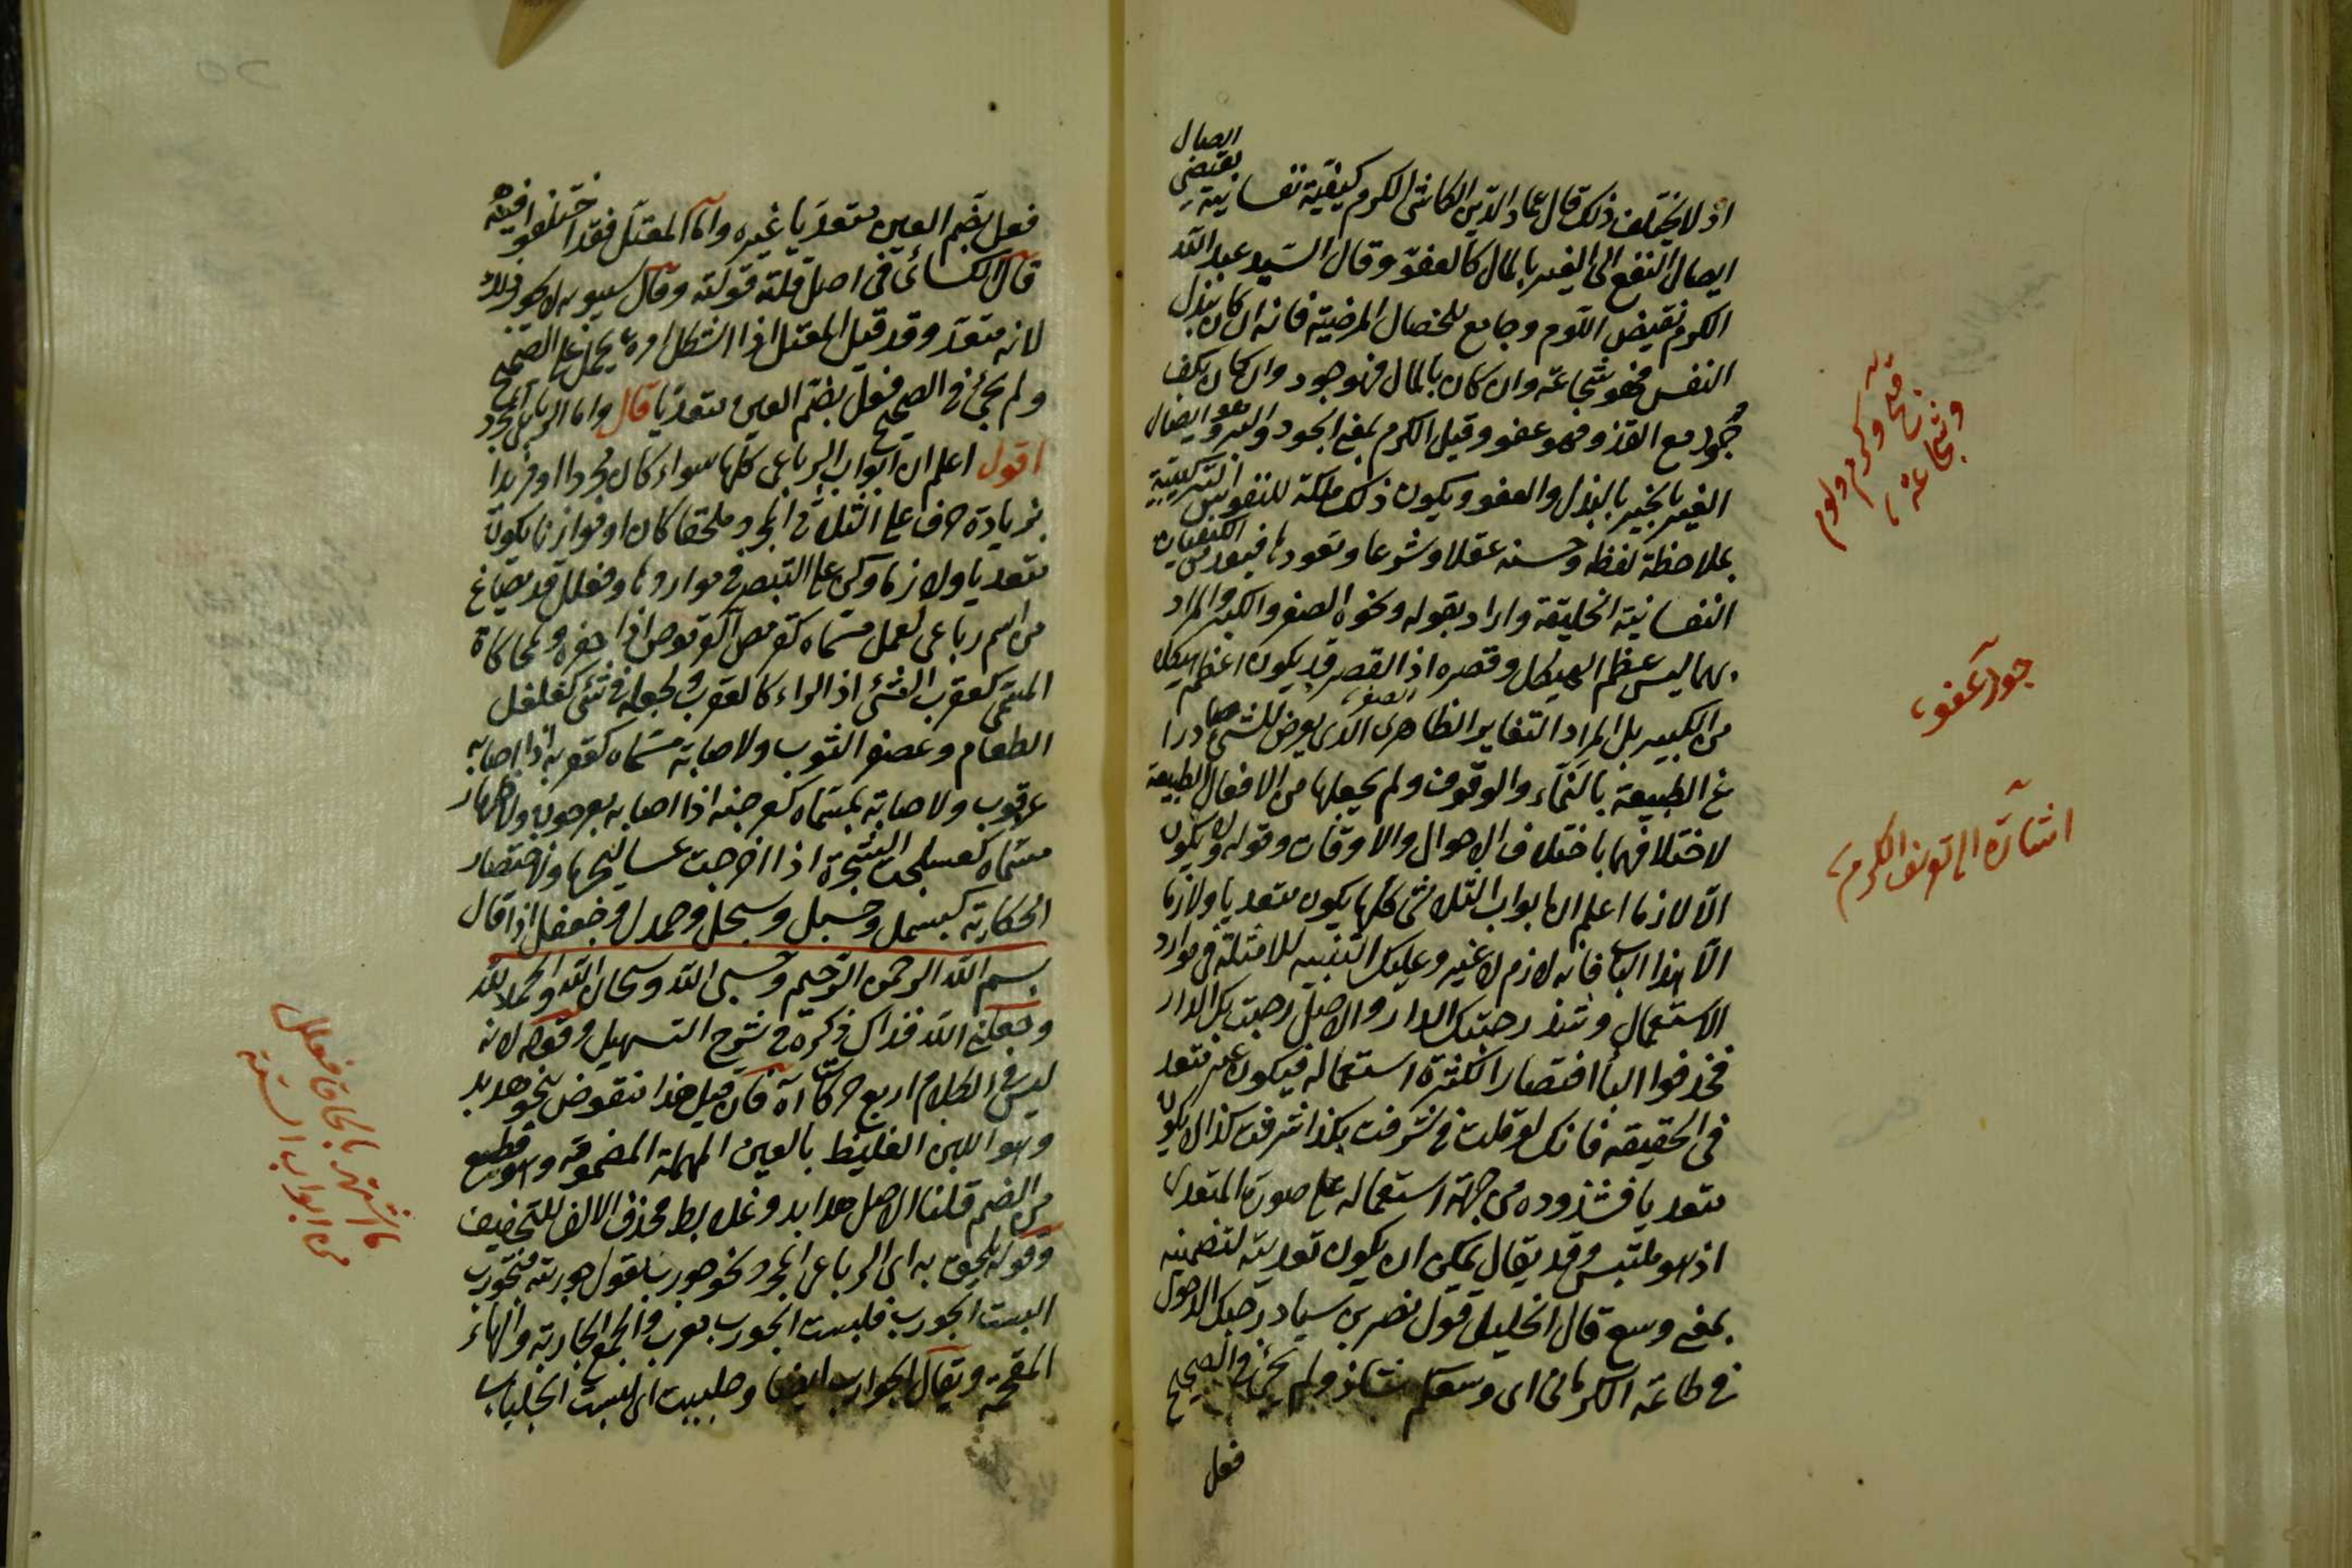 اذ لا يختلف ذلك قال عماد الدين الكاشى الكرم كيفية نفسانية يقتضى ايصال
ايصال النفع الى الغير بالمال كالعفو وقال السيد عبد الله
الكرم نقيض اللوم وجامع للخصال المرضية فانه ان كان ببذل
النفس فهو شجاعة وان كان بالمال فهو جود وان كان بكف
مع القدرة فهو عفو وقيل الكرم بمعنى الجود والعفو ايصال
الغير بالخير بالبذل والعفو ويكون ذلك ملكة للنفوس
بملاحظة لفظه وحسنه عقلا وشرعا وتعود بها فيعد من الكيفيات
النفسانية الخليقة واراد بقوله ونحوه الصغر والكبر والمراد
بهما ليس عظم الهيكل وقصره اذ القصر قد يكون اعظم هيكلا
من الكبير بل المراد التغاير الظاهرى الذى يعرض للشئ صادرا
عن الطبيعة بالنماء والوقوف ولم يجعلها من الافعال الطبيعة
لاختلافهما باختلاف الاحوال والاوقات وقوله ولا يكون
الا لازما اعلم ان ابواب الثلاثى كلها يكون متعديا ولازما
الا هذا الباب فانه لازم لا غير وعليك التنبيه للامثلة فى موارد
الاستعمال وشذ رحبتك الدار والاصل رحبت بك الدار
فحذفوا البا اختصارا لكثرة استعماله فيكون غير متعد
فى الحقيقة فانك لو قلت فى شرفت بكذا شرفت كذا لا يكون
متعديا فشذوذه من جهة استعماله على صورة المتعدى
اذ هو ملتبس وقد يقال يمكن ان يكون تعديته لتضمينه
بمعنى وسع قال الخليل قول نصر بن سيار رحبك الدخول
فى طاعة الكرمانى اى وسعكم شاذ ولم يجئ فى الصحيح
فعل
وكرم ولوم
وشجاعة
جود عفو
اشارة الى تعريف الكرم
فعل بضم العين متعديا غيره واما المعتل فقد اختلفوا فيه
قال الكسائى فى اصل قلته قولته وقال سيبويه لا يجوز ذلك
لانه متعد وقد قيل المعتل اذا اشكل امره يحمل على الصحيح
ولم يجئ فى الصحيح فعل بضم العين متعديا قال واما الرباعى المجرد
اقول اعلم ان ابواب الرباعى كلها سواء كان مجردا او مزيدا
بزيادة حرف على الثلاثى المجرد ملحقا كان او موازنا يكون
متعديا ولازما وكن على التبصر فى مواردها وفعلل قد يصاغ
من اسم رباعى لعمل مسماه كقرمص القرموص اذا حفره ولمحاكاة
المسمى كعقرب الشئ اذا لواه كالعقرب ولجعله فى شئ كفلفل
الطعام وعصفر الثوب ولاصابة مسماه كعرقبه اذا اصابه
عرقوب ولاصابته بمسماه كعرجنه اذا اصابه بعرجون ولاظهار
مسماه كعسلجت الشجرة اذا اخرجت عساليجها ولاختصار
الحكاية كبسمل وحسبل وسبحل وحمدل وجعفل اذا قال
بسم الله الرحمن الرحيم وحسبى الله وسبحان الله والحمد لله
وجعلنى الله فداك ذكره فى شرح التسهيل وقوله لانه
ليس فى الكلام اربع حركات اه فان قيل هذا منقوض بنحو هدبد
وهو اللبن الغليظ وبالعين المهملة المضمومة وهو قطيع
من الغنم قلنا الاصل هدابد وعلابط محذف الالف للتخفيف
وقوله يلحق به اى الرباعى المجرد نحو جورب تقول جوربته فتجورب
البسته الجورب فلبسه الجورب معرب والجمع الجواربة والهاء
المقحمة ويقال الجوارب ايضا وجلببت اى لبست الجلباب
ما اشتهر بالحاقا فعلل
من ابواب الستة